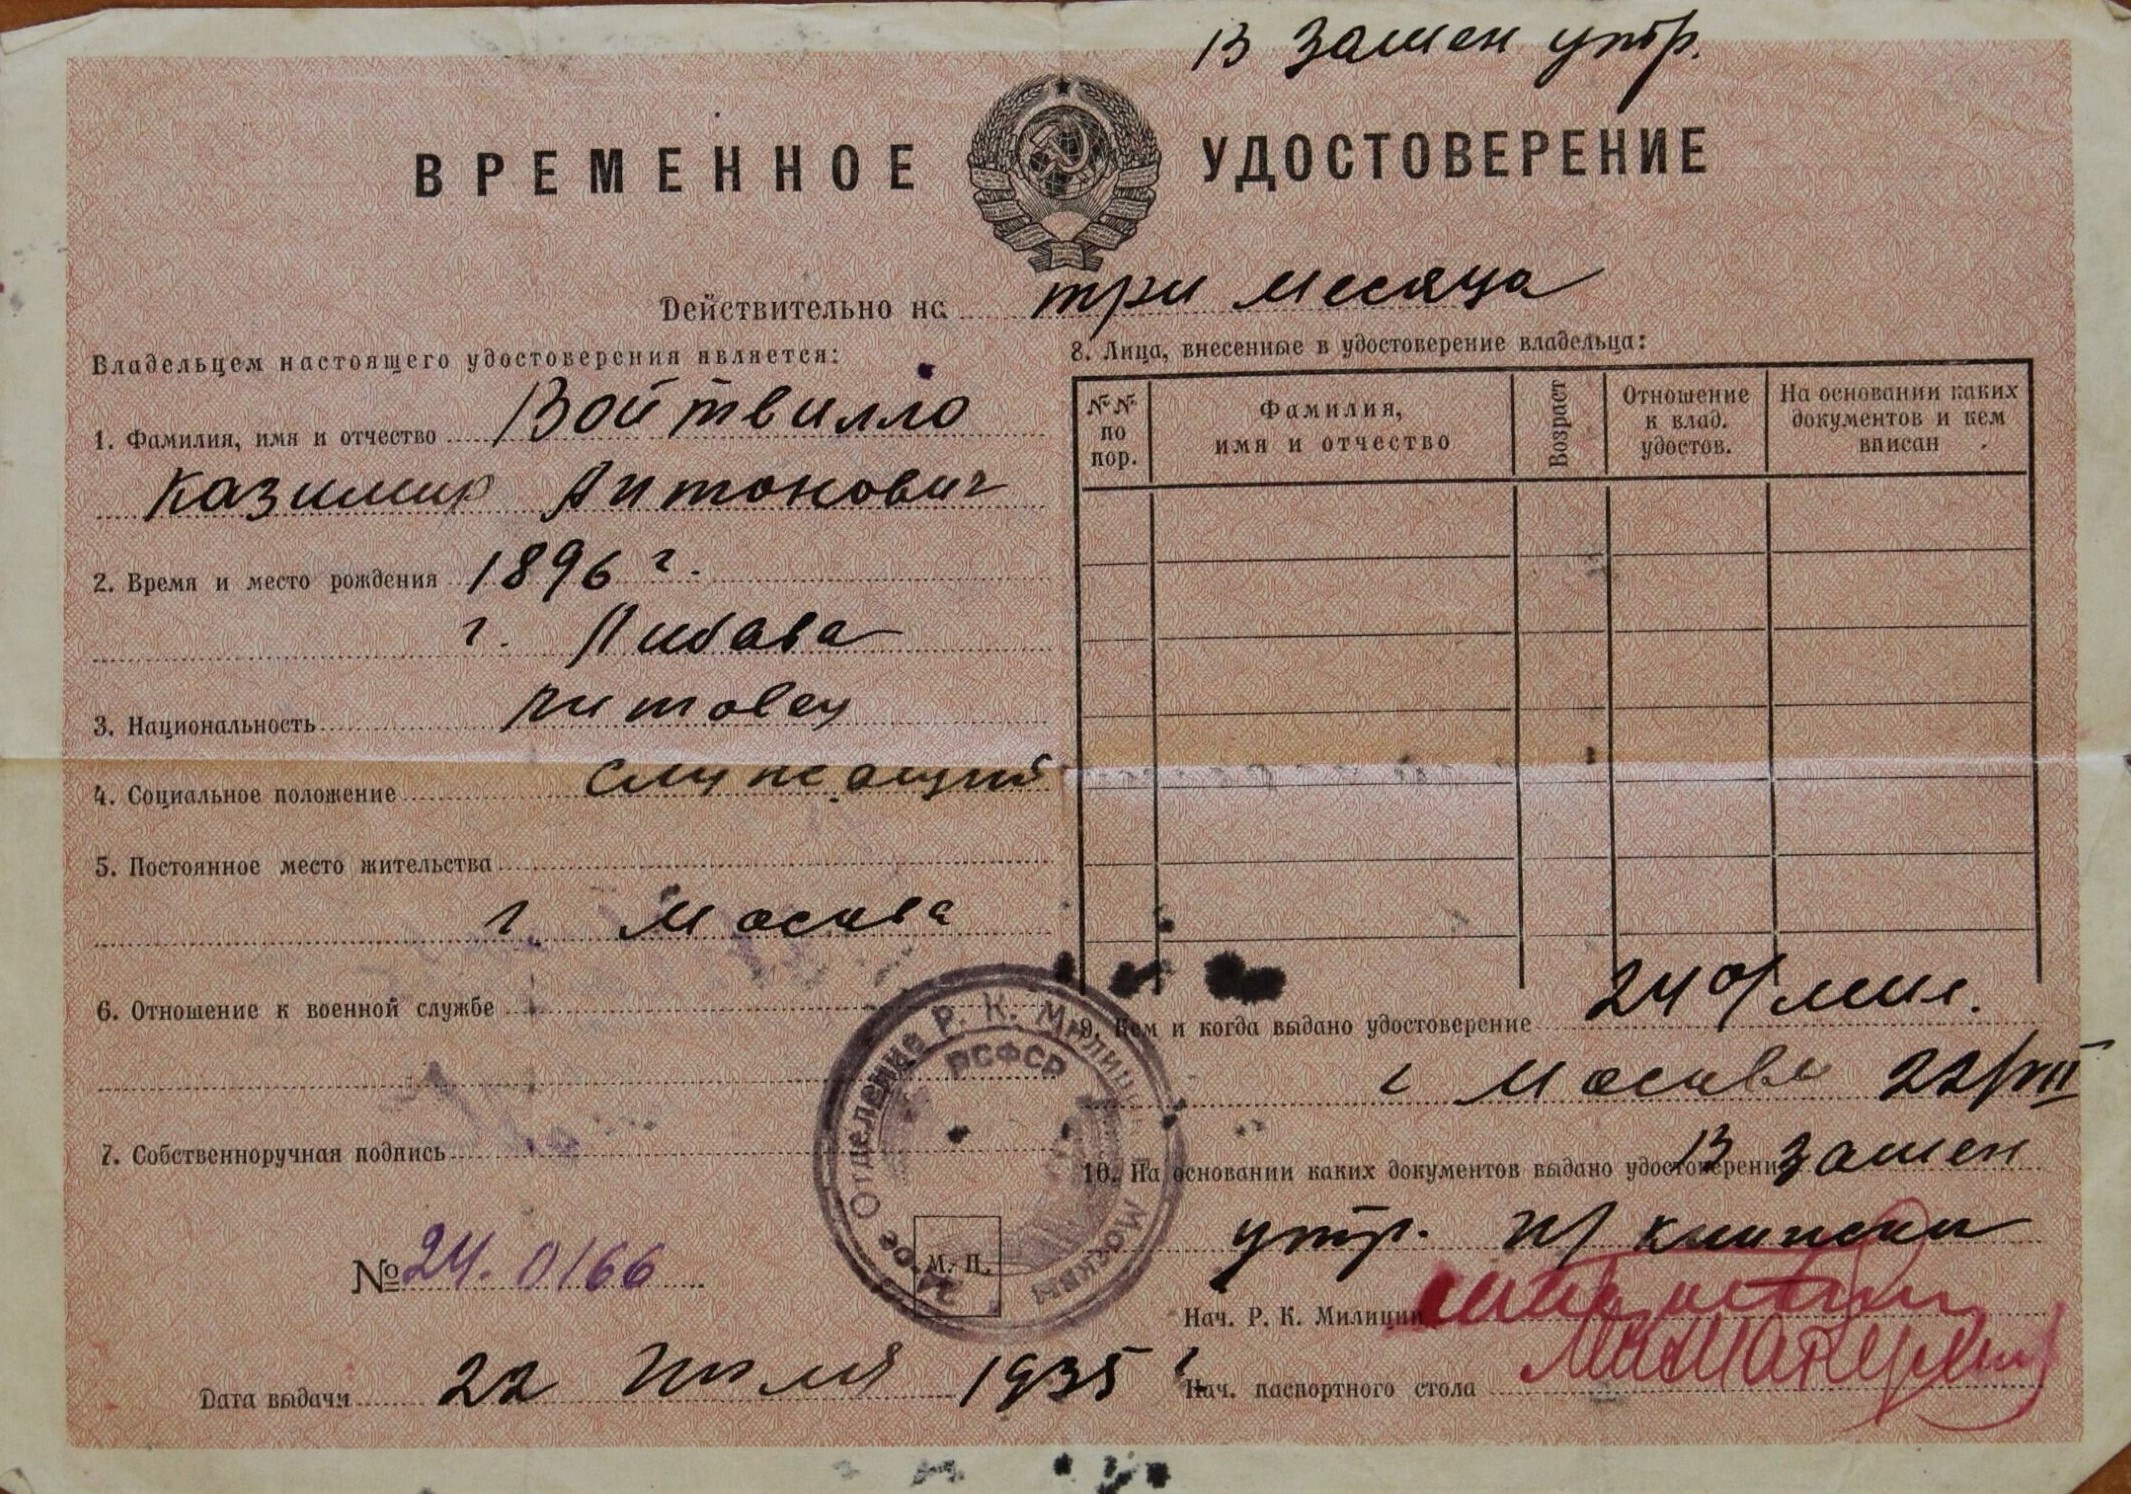 В замен утр.
ВРЕМЕННОЕ УДОСТОВЕРЕНИЕ
Действительно на три месяца
Владельцем настоящего удостоверения является:
1. Фамилия, имя и отчество Войтвилло
Казимир Антонович
2. Время и место рождения 1896 г.
г. Либава
3. Национальность литовец
4. Социальное положение служащий
5. Постоянное место жительства
г. Москва
6. Отношение к военной службе
7. Собственноручная подпись
№ 24.0166
Дата выдачи 22 июля 1935 г.
8. Лица, внесенные в удостоверение владельца:
№№ по пор.
Фамилия, имя и отчество
Возраст
Отношение к влад. удостов.
На основании каких документов и кем вписан
9. Кем и когда выдано удостоверение 24 о/мил.
г Москвы 22/VII
10. На основании каких документов выдано удостоверение В замен
утр. п/книжки
Нач. Р. К. Милиции
Нач. паспортного стола
24ое Отделение Р. К. Милиции г. Москвы
РСФСР
М. П.